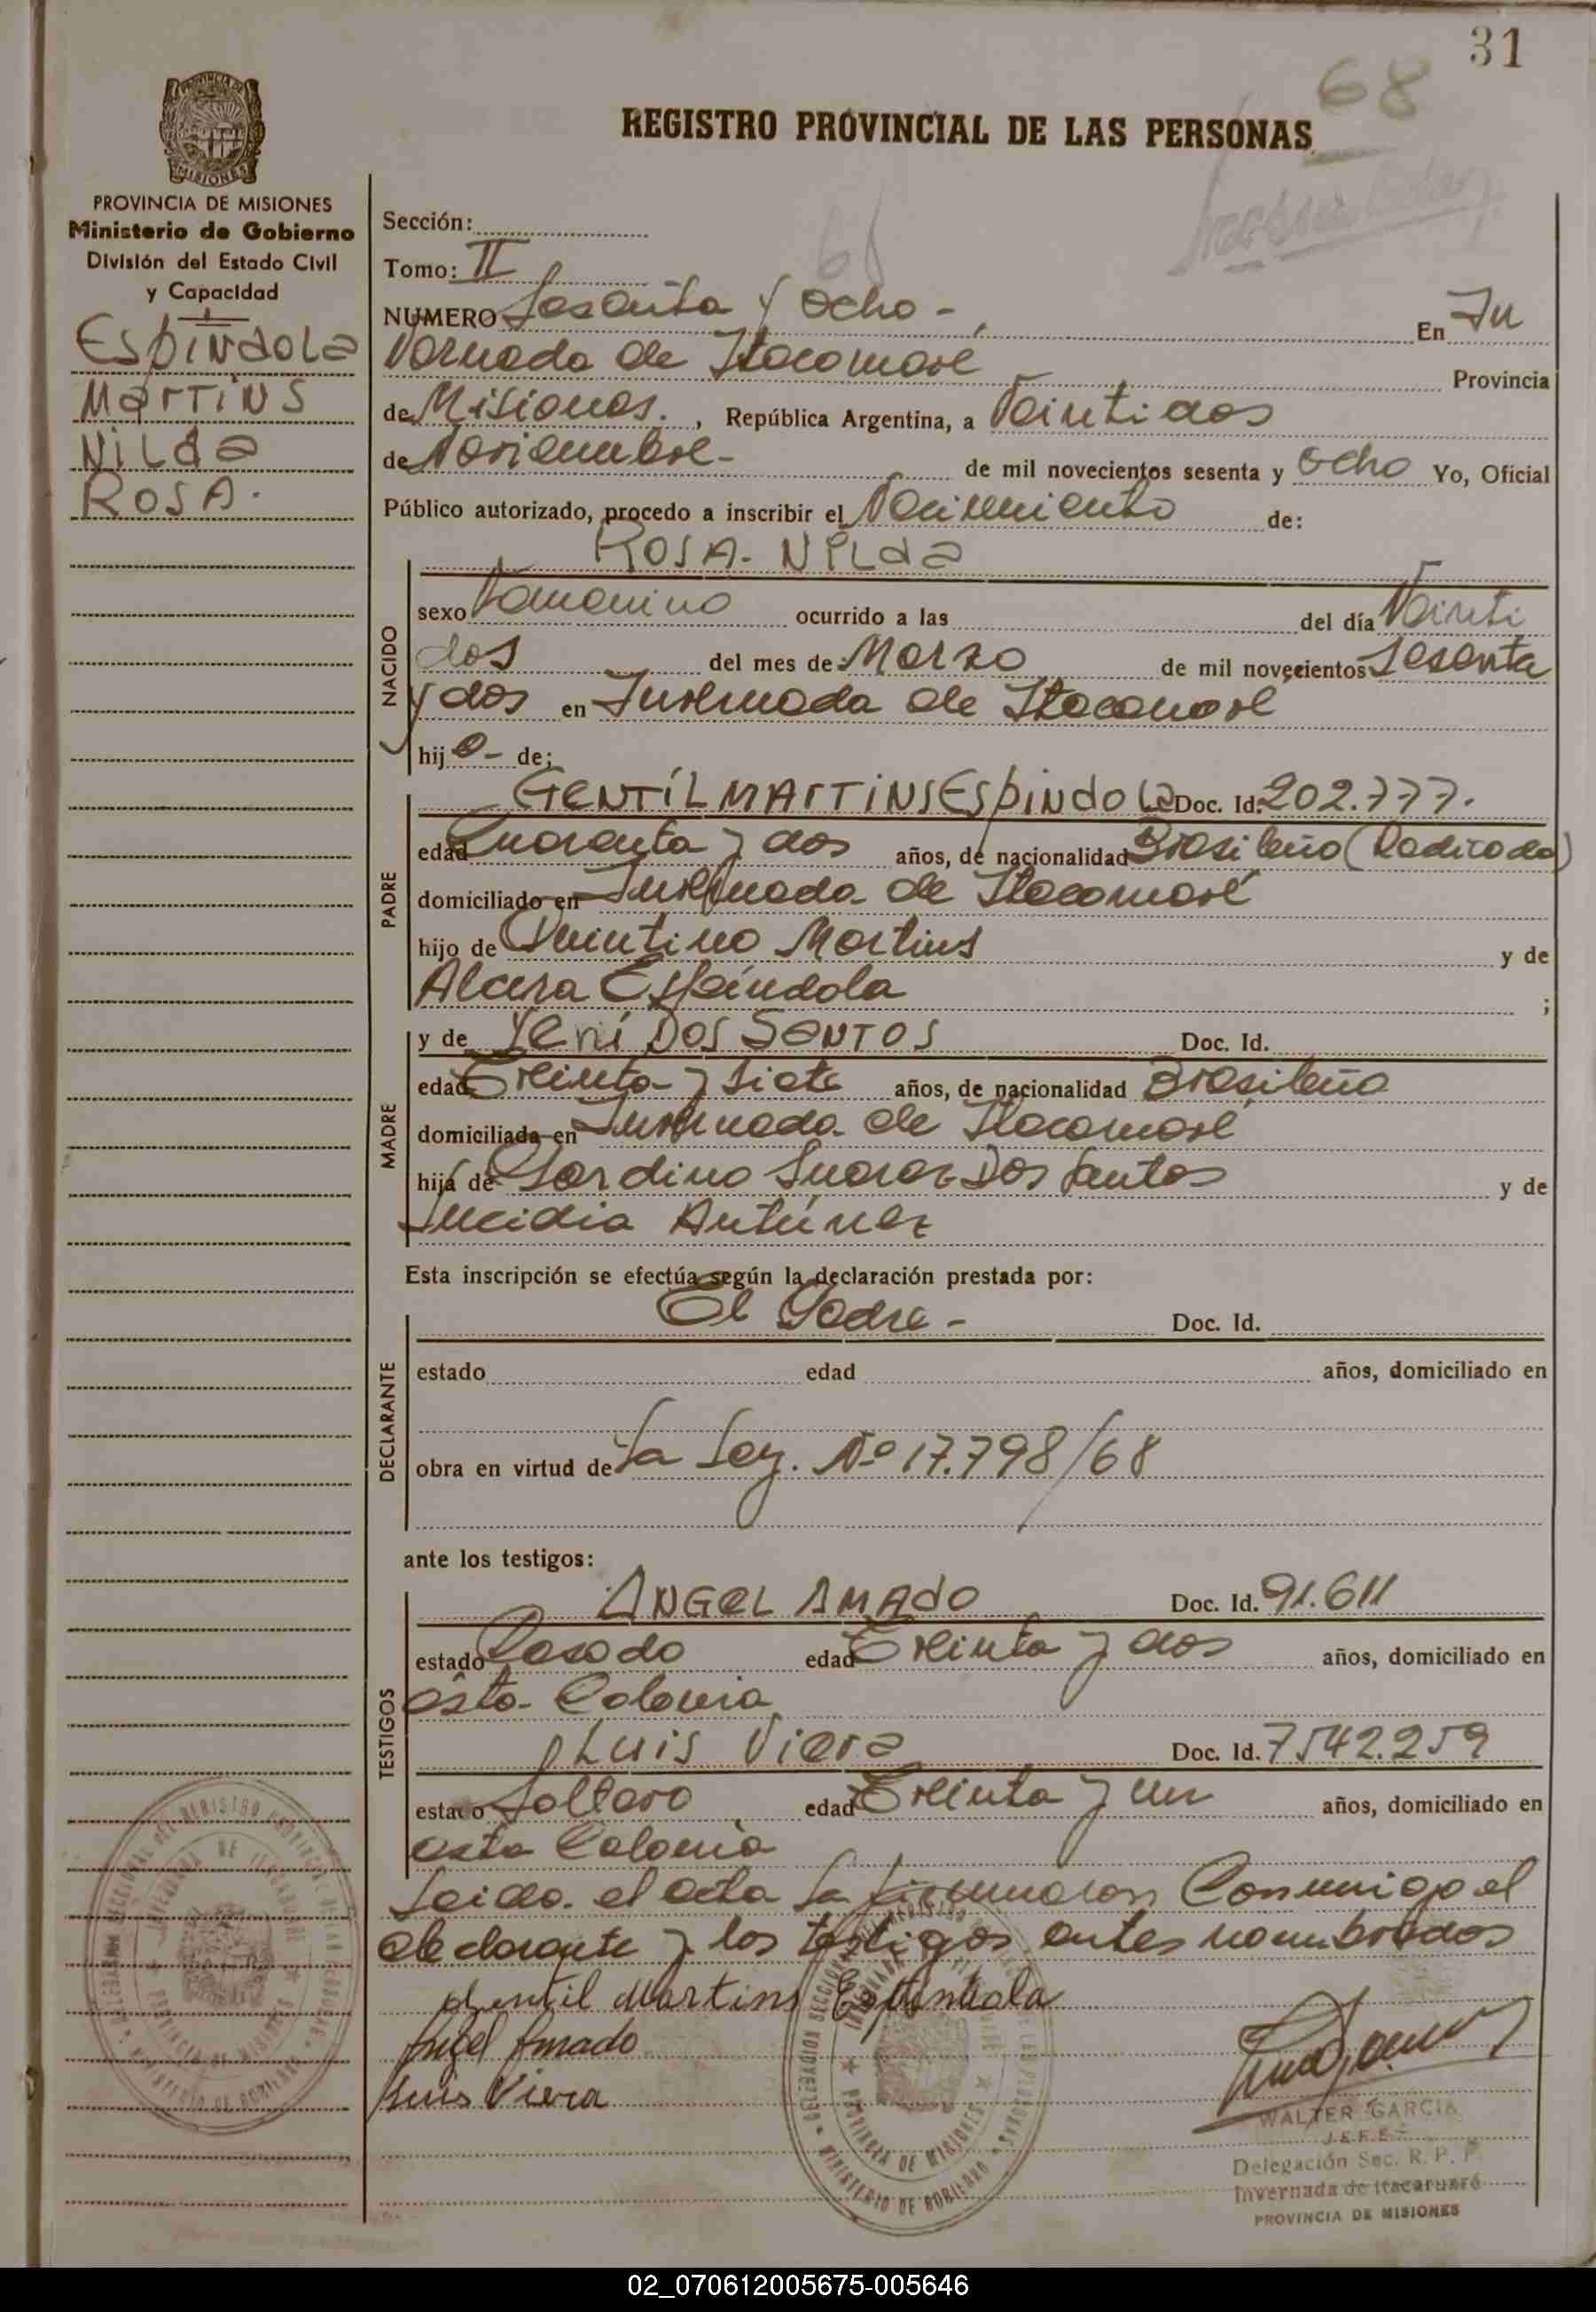 31
68
REGISTRO PROVINCIAL DE LAS PERSONAS
PROVINCIA DE MISIONES
Ministerio de Gobierno
División del Estado Civil
y Capacidad
Espindola
Martins
Nilda
Rosa.
Sección:
Tomo: II
68
NUMERO Sesenta y Ocho - En In
vernada de Itacaruaré Provincia
de Misiones. , República Argentina, a Veintidos
de Noviembre - de mil novecientos sesenta y Ocho Yo, Oficial
Público autorizado, procedo a inscribir el Nacimiento de:
NACIDO
ROSA. NILda
sexo Femenino ocurrido a las del día Veinti
dos del mes de Marzo de mil novecientos Sesenta
y dos en Invernada de Itacaruaré
hij a - de;
PADRE
GENTÍL MARTiNS ESpiNdola Doc. Id. 202.777.
edad Cuarenta y dos años, de nacionalidad Brasileño (Radicado)
domiciliado en Invernada de Itacaruaré
hijo de Quintino Martins y de
Alcira Espíndola ;
MADRE
y de Yení Dos Santos Doc. Id.
edad Treinta y Siete años, de nacionalidad Brasileña
domiciliada en Invernada de Itacaruaré
hija de Sardino Suarez Dos Santos y de
Lucidia Antúnez
Esta inscripción se efectúa según la declaración prestada por:
DECLARANTE
El Padre - Doc. Id.
estado edad años, domiciliado en
obra en virtud de La Ley. Nº 17.798/68
ante los testigos:
TESTIGOS
ANGEL AMADO Doc. Id. 91.611
estado Casado edad Treinta y dos años, domiciliado en
esta Colonia
Luis Viera Doc. Id. 7542.259
estado Soltero edad Treinta y un años, domiciliado en
esta Colonia
Leida el acta la firmaron Conmigo el
declarante y los testigos antes nombrados
Gentil Martins Espindola
Angel Amado
Luis Viera
WALTER GARCIA
JEFE
Delegación Sec. R. P. P.
Invernada de Itacaruaré
PROVINCIA DE MISIONES
02_070612005675-005646